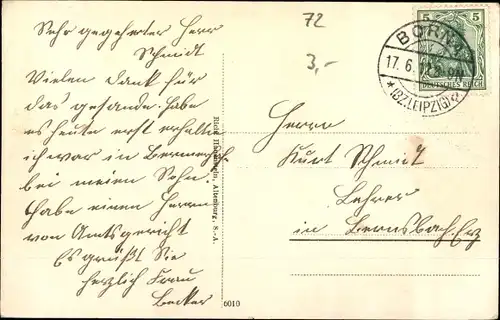 Sehr geehrter Herr
Schmidt
Vielen Dank für
das gesande. Habe
es heute erst erhalten
ich war in
bei meinen Sohn.
Habe einen Herrn
von Amtsgericht
Es grüßt Sie
herzlich Frau
Becker
72
3,-
5 5
DEUTSCHES REICH
BORNA
17. 6.
*(BZ.LEIPZIG)
Altenburg, S.-A.
6010
Herrn
Kurt Schmidt
Lehrer
in Bernsbach. Erz